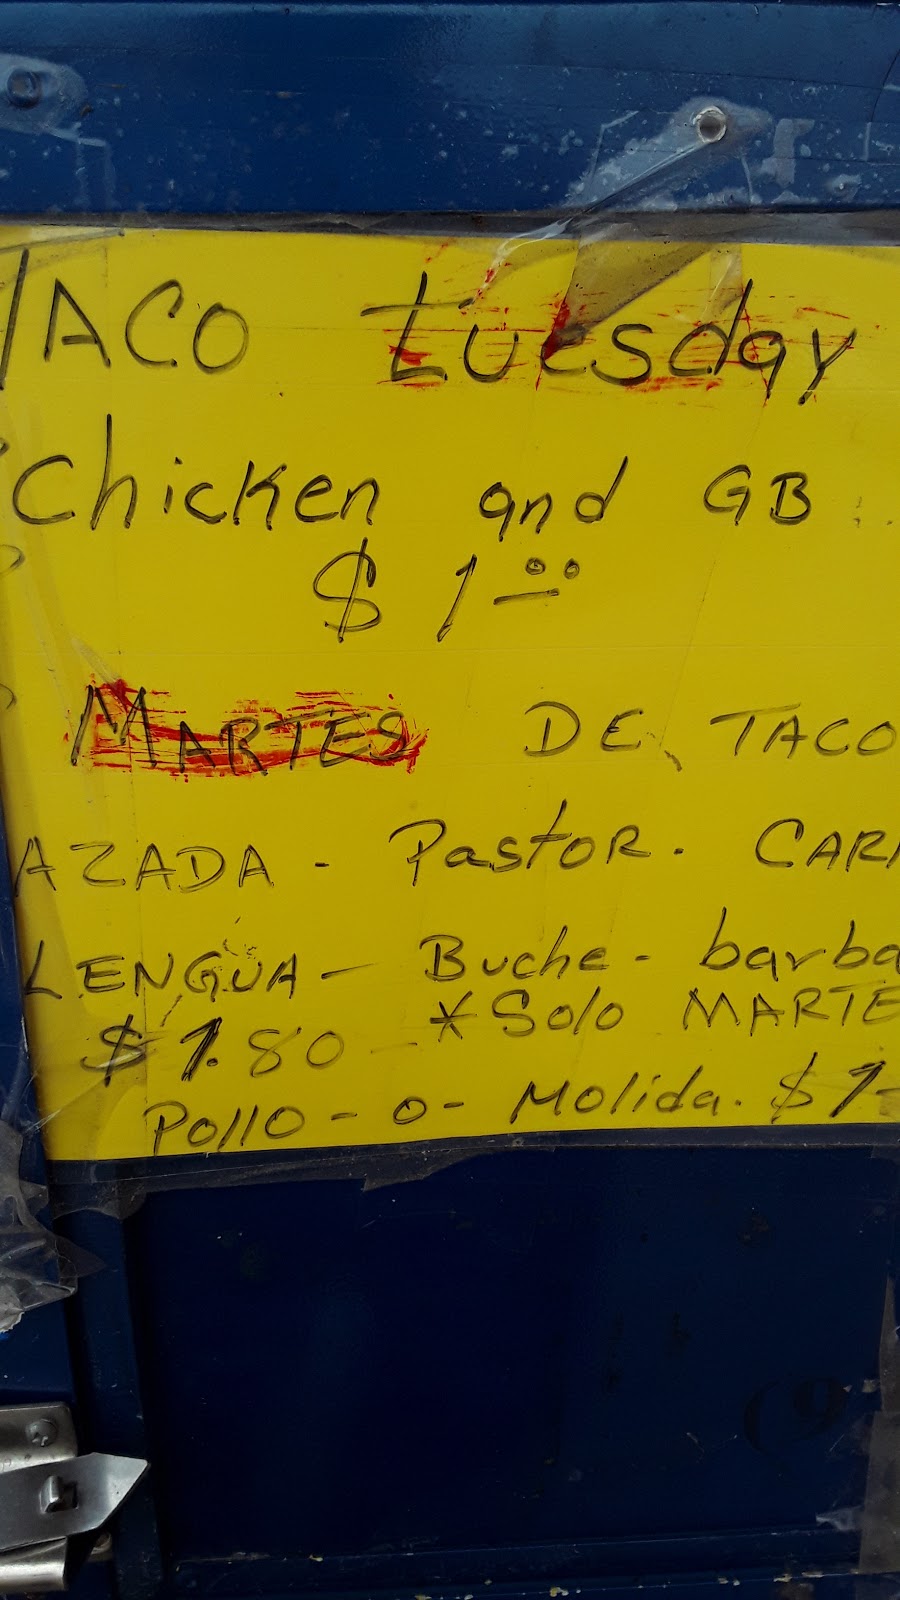 TACO tuesday
Chicken and GB
$ 1 00
MARTES DE TACO
AZADA - Pastor. CAR
LENGUA - Buche - barba
$ 1.80 - * Solo MARTE
Pollo - o - Molida. $ 1-
(9